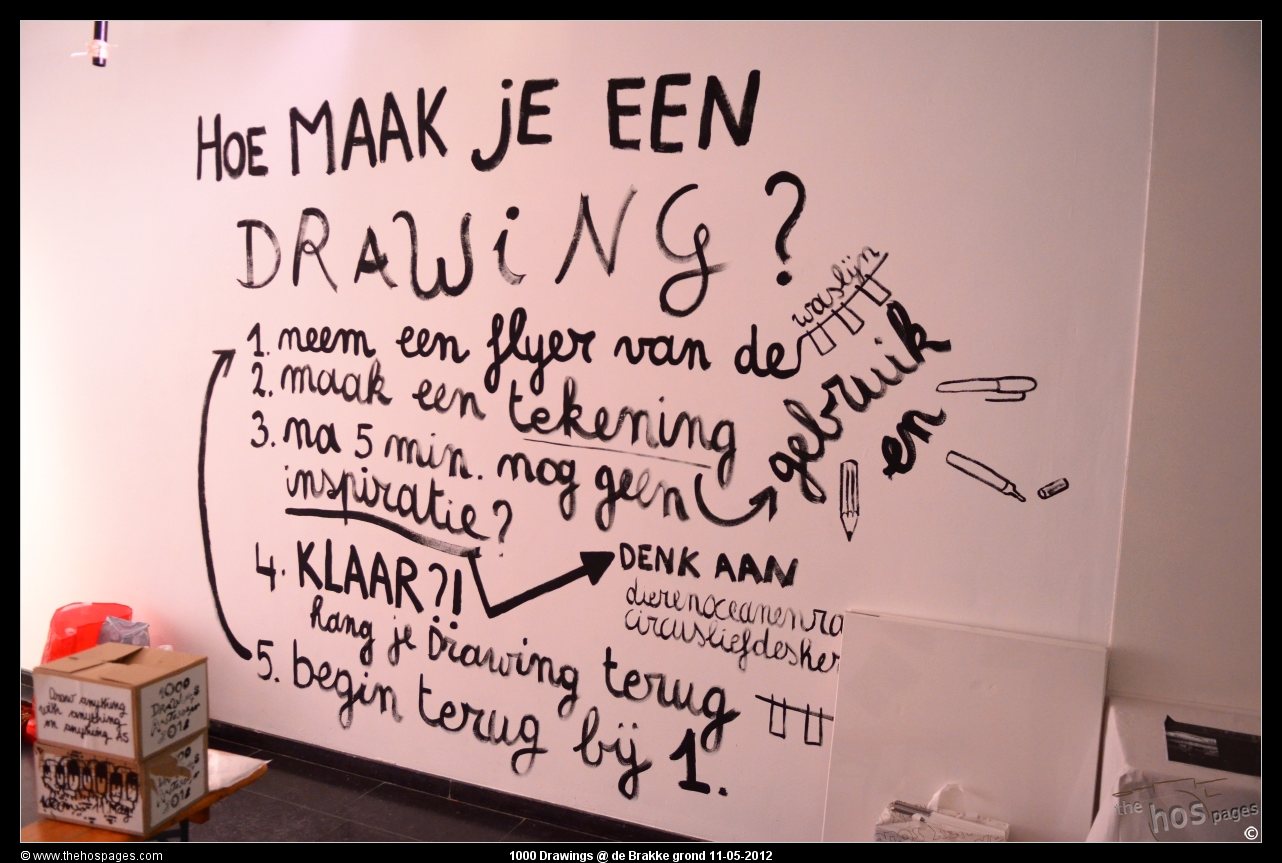 HOE MAAK jE EEN
DRAWiNG?
1. neem een flyer van de
waslijn
2. maak een tekening
gebruik
en
3. na 5 min. nog geen
inspiratie?
DENK AAN
dierenoceanen
circusliefdes
4. KLAAR?!
hang je Drawing terug
5. begin terug bij 1.
Draw anything
with anything
on anything A5
1000
the hos pages
©
© www.thehospages.com
1000 Drawings @ de Brakke grond 11-05-2012